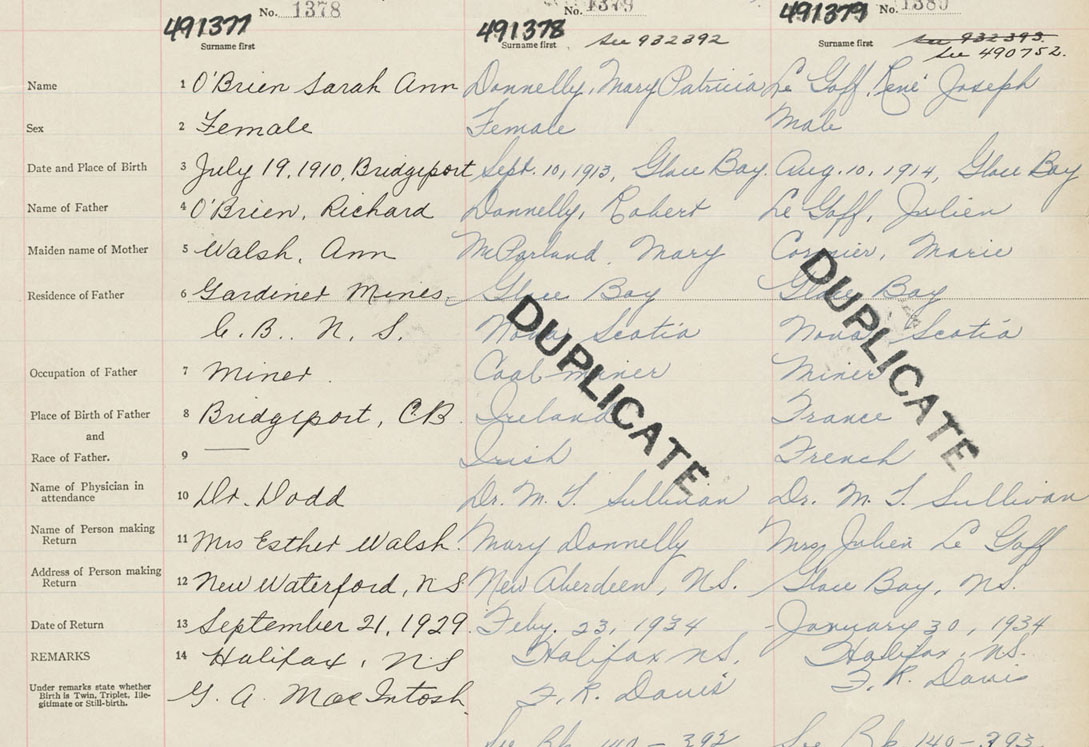 No. 1378 No. 1379 No. 1380
491377 491378 491379
Surname first Surname first see 932392 Surname first see 932393.
see 490752.
Name 1 O'Brien Sarah Ann Donnelly, Mary Patricia Le Goff, René Joseph
Sex 2 Female Female Male
Date and Place of Birth 3 July 19, 1910, Bridgeport Sept. 10, 1913, Glace Bay. Aug. 10, 1914, Glace Bay
Name of Father 4 O'Brien, Richard Donnelly, Robert Le Goff, Julien
Maiden name of Mother 5 Walsh, Ann McParland, Mary Cormier, Marie
Residence of Father 6 Gardiner Mines, Glace Bay Glace Bay
C.B., N.S. Nova Scotia Nova Scotia
DUPLICATE DUPLICATE
Occupation of Father 7 Miner. Coal miner Miner
Place of Birth of Father 8 Bridgeport, C.B. Ireland France
and
Race of Father. 9 — Irish French
Name of Physician in
attendance 10 Dr. Dodd Dr. M. T. Sullivan Dr. M. T. Sullivan
Name of Person making
Return 11 Mrs Esther Walsh. Mary Donnelly Mrs. Julien Le Goff
Address of Person making
Return 12 New Waterford, NS New Aberdeen, N.S. Glace Bay, NS.
Date of Return 13 September 21, 1929. Feby. 23, 1934 January 30, 1934
REMARKS 14 Halifax, NS Halifax NS. Halifax, NS.
Under remarks state whether
Birth is Twin, Triplet, Ille-
gitimate or Still-birth. G. A. MacIntosh F. R. Davis F. R. Davis
See Bk 140-392 See Bk 140-393